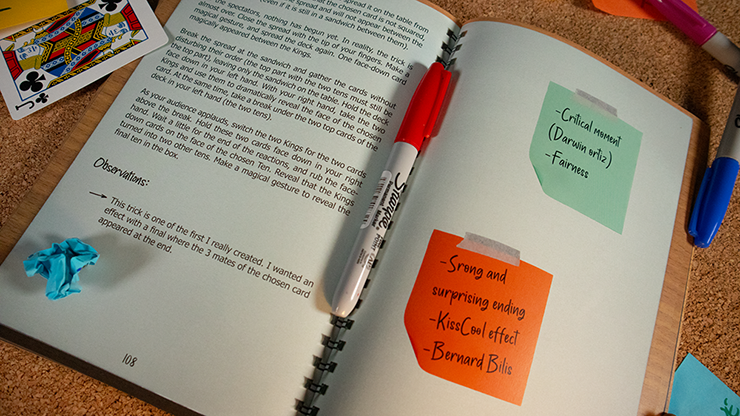 spread it on the table from
the chosen card is not squared
spread and will not appear between the
(even if it is still in a sandwich between them).
the spectators, nothing has begun yet. In reality, the trick
almost over. Close the spread with the tip of your fingers. Make a
magical gesture, and spread the deck again. One face-down card
magically appeared between the Kings.
Break the spread at the sandwich and gather the cards without
disturbing their order (the top part with the two tens must still be
the top part), leaving only the sandwich on the table. Hold the deck
face down in your left hand. With your right hand, take the two
Kings and use them to dramatically reveal the face of the chosen
card. At the same time, take a break under the two top cards of the
deck in your left hand (the two tens).
As your audience applauds, switch the two Kings for the two cards
above the break. Hold these two cards face down in your right
hand. Wait a little for the end of the reactions, and rub the face-
down cards on the face of the chosen Ten. Reveal that the Kings
turned into two other tens. Make a magical gesture to reveal the
final ten in the box.
Observations:
This trick is one of the first I really created. I wanted an
effect with a final where the 3 mates of the chosen card
appeared at the end.
108
J
Sharpie
-Critical moment
(Darwin ortiz)
-Fairness
-Srong and
surprising ending
-KissCool effect
-Bernard Bilis